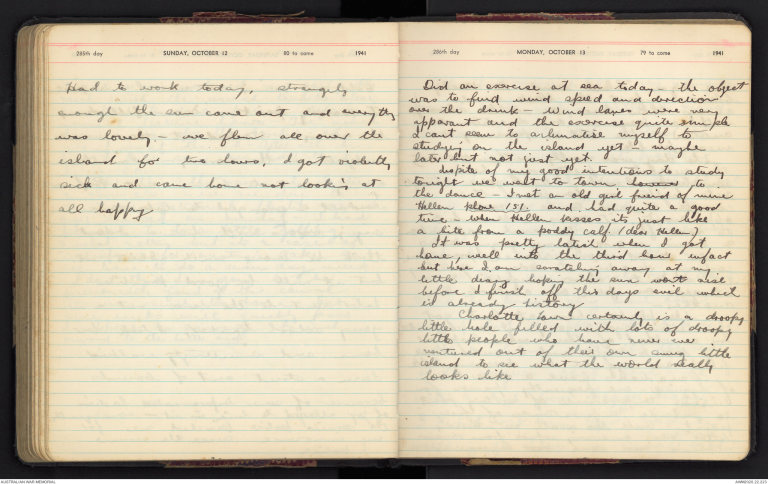 285th day SUNDAY, OCTOBER 12 80 to come 1941
Had to work today, strangely
enough the sun came out and everythg
was lovely - we flew all over the
island for two hours, I got violently
sick and came home not looking at
all happy
286th day MONDAY, OCTOBER 13 79 to come 1941
Did an exercise at sea today - the object
was to find wind speed and direction
over the drink - wind lanes were very
apparant and the exercise quite simple
I cant seem to aclimatise myself to
studying on the island yet - maybe
later but not just yet.
Dispite of my good intentions to study
tonight we went to town to
the dance - I met an old girl freind of mine
Hellen phone 151. and had quite a good
time - when Hellen kisses its just like
a bite from a poddy calf. (dear Hellen)
It was pretty latish when I got
home, well into the third hour infact
but here I am scratching away at my
little diary hoping the sun wont rise
before I finish off this days evil which
is already history
Charlotte town certainly is a droopy
little hole filled with lots of droopy
little people who have never
ventured out of their own little
island to see what the world really
looks like
AUSTRALIAN WAR MEMORIAL